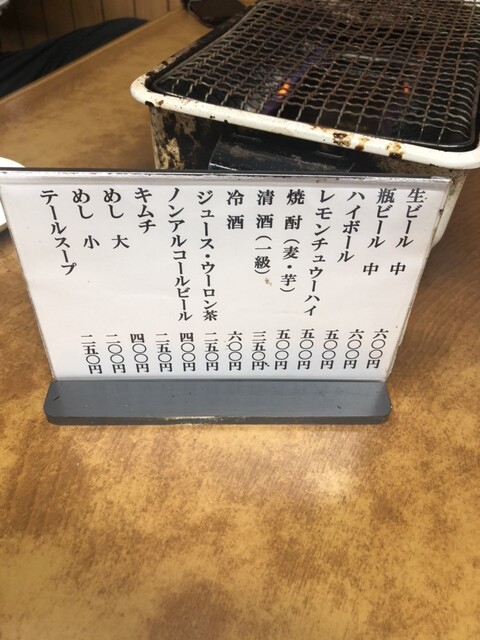 生ビール 中 六〇〇円
瓶ビール 中 六〇〇円
ハイボール 五〇〇円
レモンチュウーハイ 五〇〇円
焼酎（麦・芋） 五〇〇円
清酒（一級） 三五〇円
冷酒 六〇〇円
ジュース・ウーロン茶 二五〇円
ノンアルコールビール 四〇〇円
キムチ 二五〇円
めし 大 四〇〇円
めし 小 二〇〇円
テールスープ 二五〇円